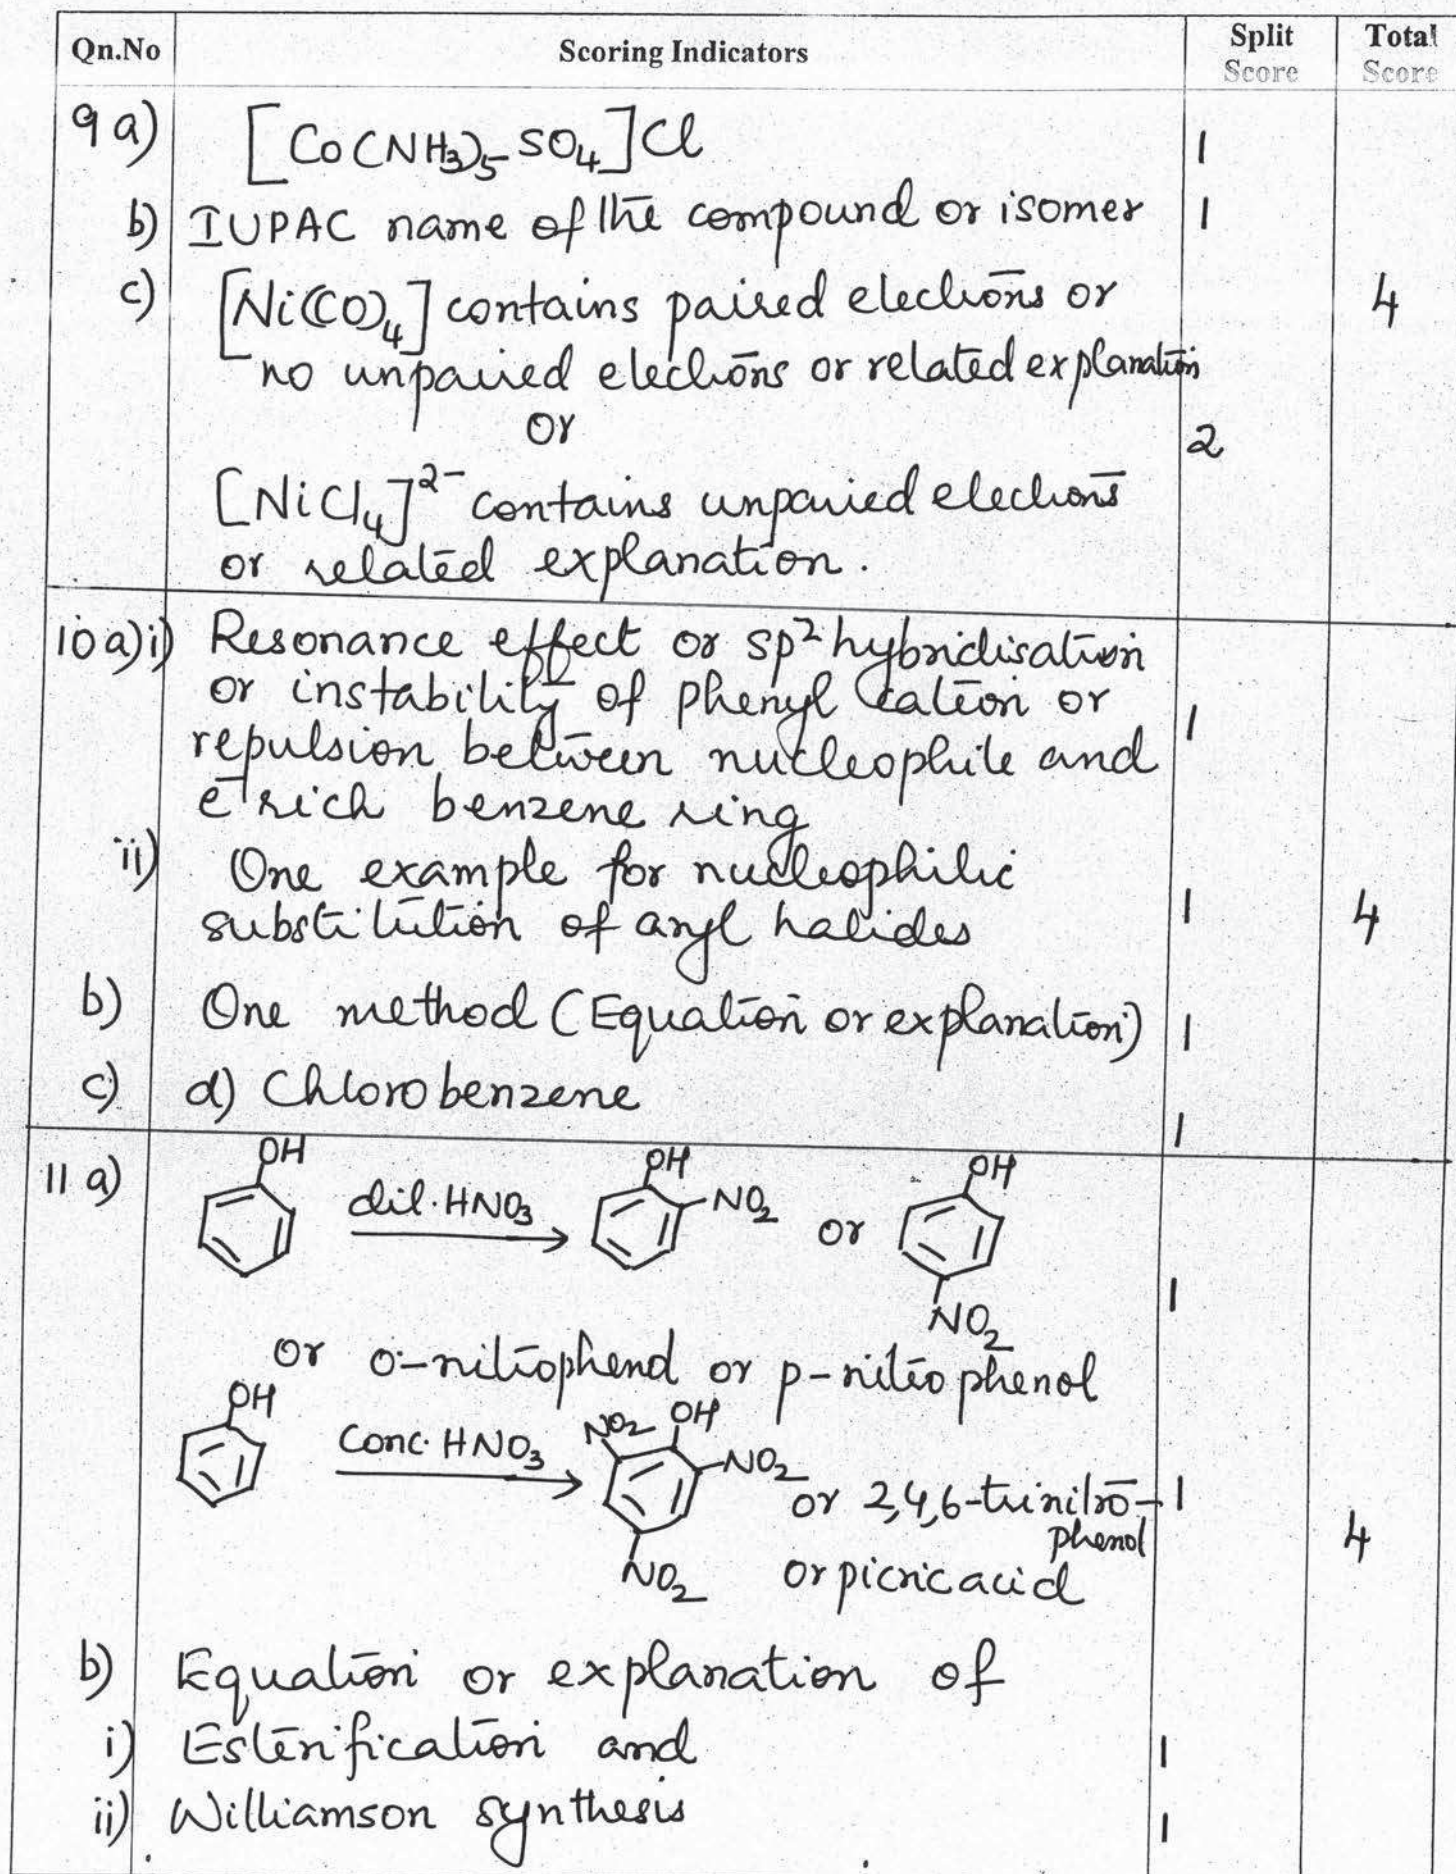 Qn.No Scoring Indicators Split Score Total Score
9 a) [Co(NH3)5 SO4]Cl 1
b) IUPAC name of the compound or isomer 1
c) [Ni(CO)4] contains paired electrons or 4
no unpaired electrons or related explanation
or
2
[NiCl4]2- contains unpaired electrons
or related explanation.
10 a) i) Resonance effect or sp2 hybridisation
or instability of phenyl cation or 1
repulsion between nucleophile and
e- rich benzene ring
ii) One example for nucleophilic
substitution of aryl halides 1 4
b) One method (Equation or explanation) 1
c) d) Chlorobenzene 1
11 a) OH dil. HNO3 OH NO2 or OH
NO2 1
or o-nitrophenol or p-nitrophenol
OH Conc. HNO3 NO2 OH NO2
or 2,4,6-trinitro- 1
phenol 4
NO2 or picric acid
b) Equation or explanation of
i) Esterification and 1
ii) Williamson synthesis 1